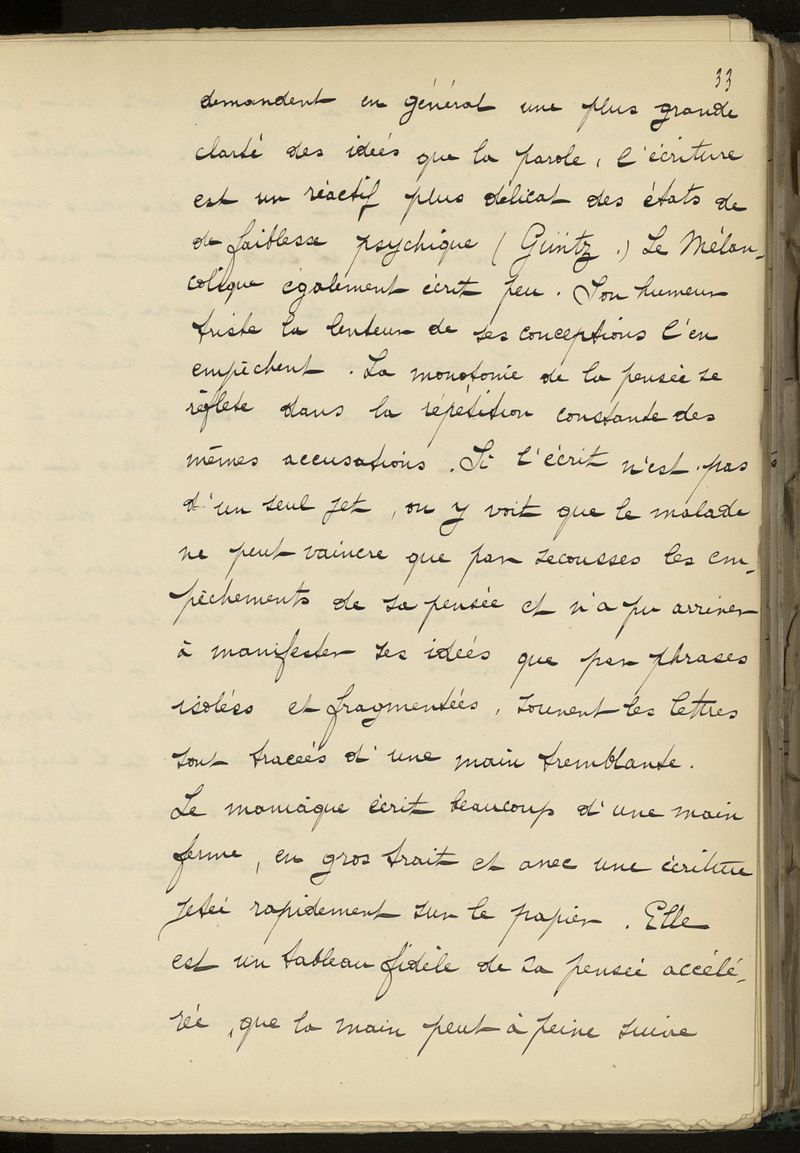 33
demandent en général une plus grande
clarté des ideés que la parole, l'écriture
est un réactif plus délicat des états de
de faiblesse psychique (Güntz.) Le Mélan-
colique également écrit peu. Son humeur
triste la lenteur de ses conceptions l'en
empêchent. La monotonie de la pensée se
réflete dans la répétition constante des
mêmes accusations. Si l'écrit n'est pas
d'un seul jet, on y voit que le malade
ne peut vaincre que par secousses les em-
pêchements de sa pensée et n'a pu arriver
à manifester ses ideés que par phrases
isolées et fragmentées, souvent les lettres
sont traceés d'une main tremblante.
Le maniaque écrit beaucoup d'une main
ferme, en gros trait et avec une écriture
jeteé rapidement sur le papier. Elle
est un tableau fidèle de sa penseé accélé-
rée, que la main peut à peine suivre